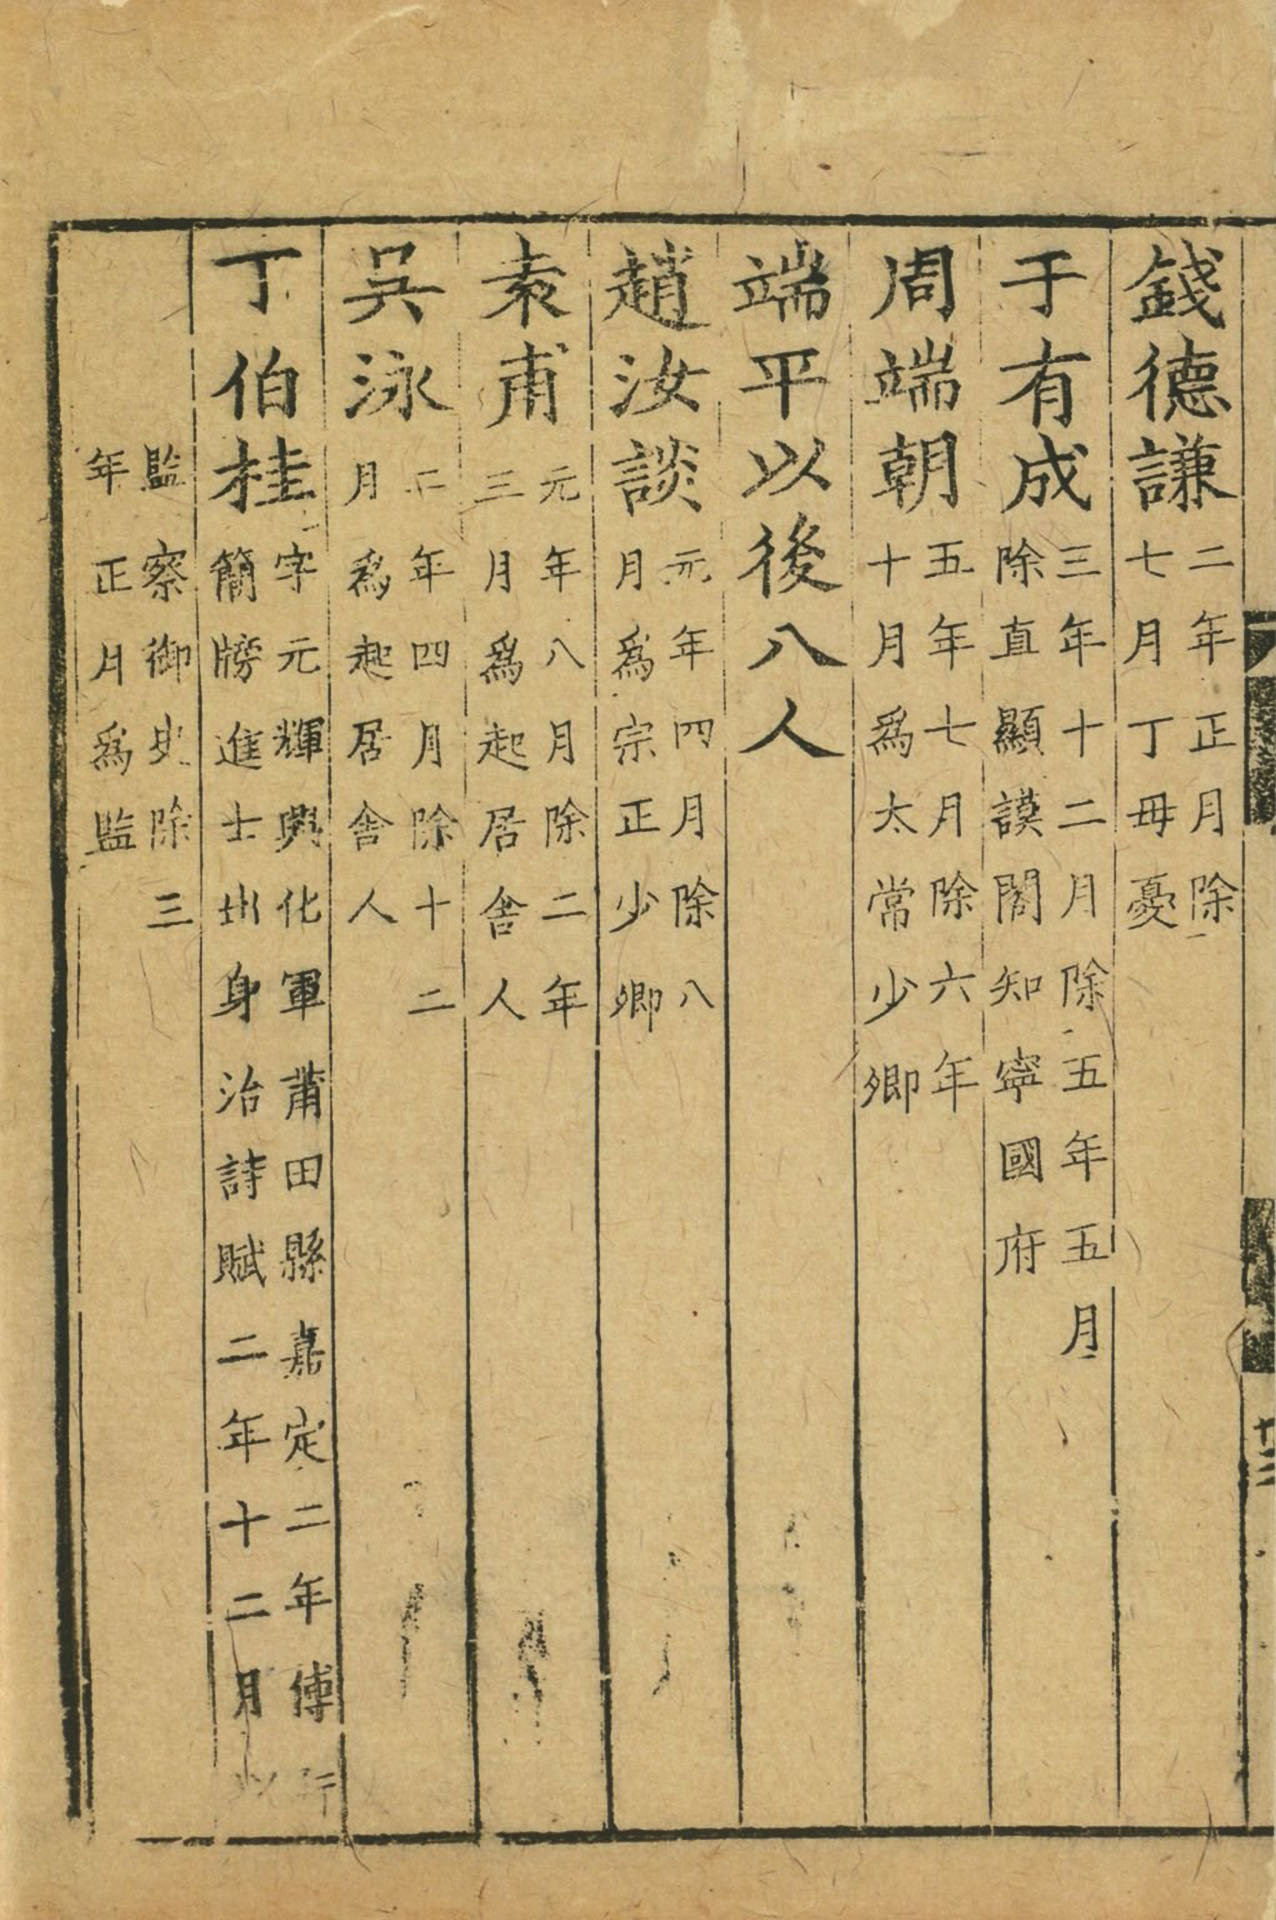 錢德謙二年正月除
七月丁毋憂
于有成三年十二月除五年五月
除直顯謨閣知寧國府
周端朝五年七月除六年
十月爲太常少卿
端平以後八人
趙汝談元年四月除八
月爲宗正少卿
袁甫元年八月除二年
三月爲起居舍人
吳泳二年四月除十二
月爲起居舍人
丁伯桂字元輝興化軍莆田縣嘉定二年傅行
簡牓進士出身治詩賦二年十二月以
監察御史除三
年正月爲監